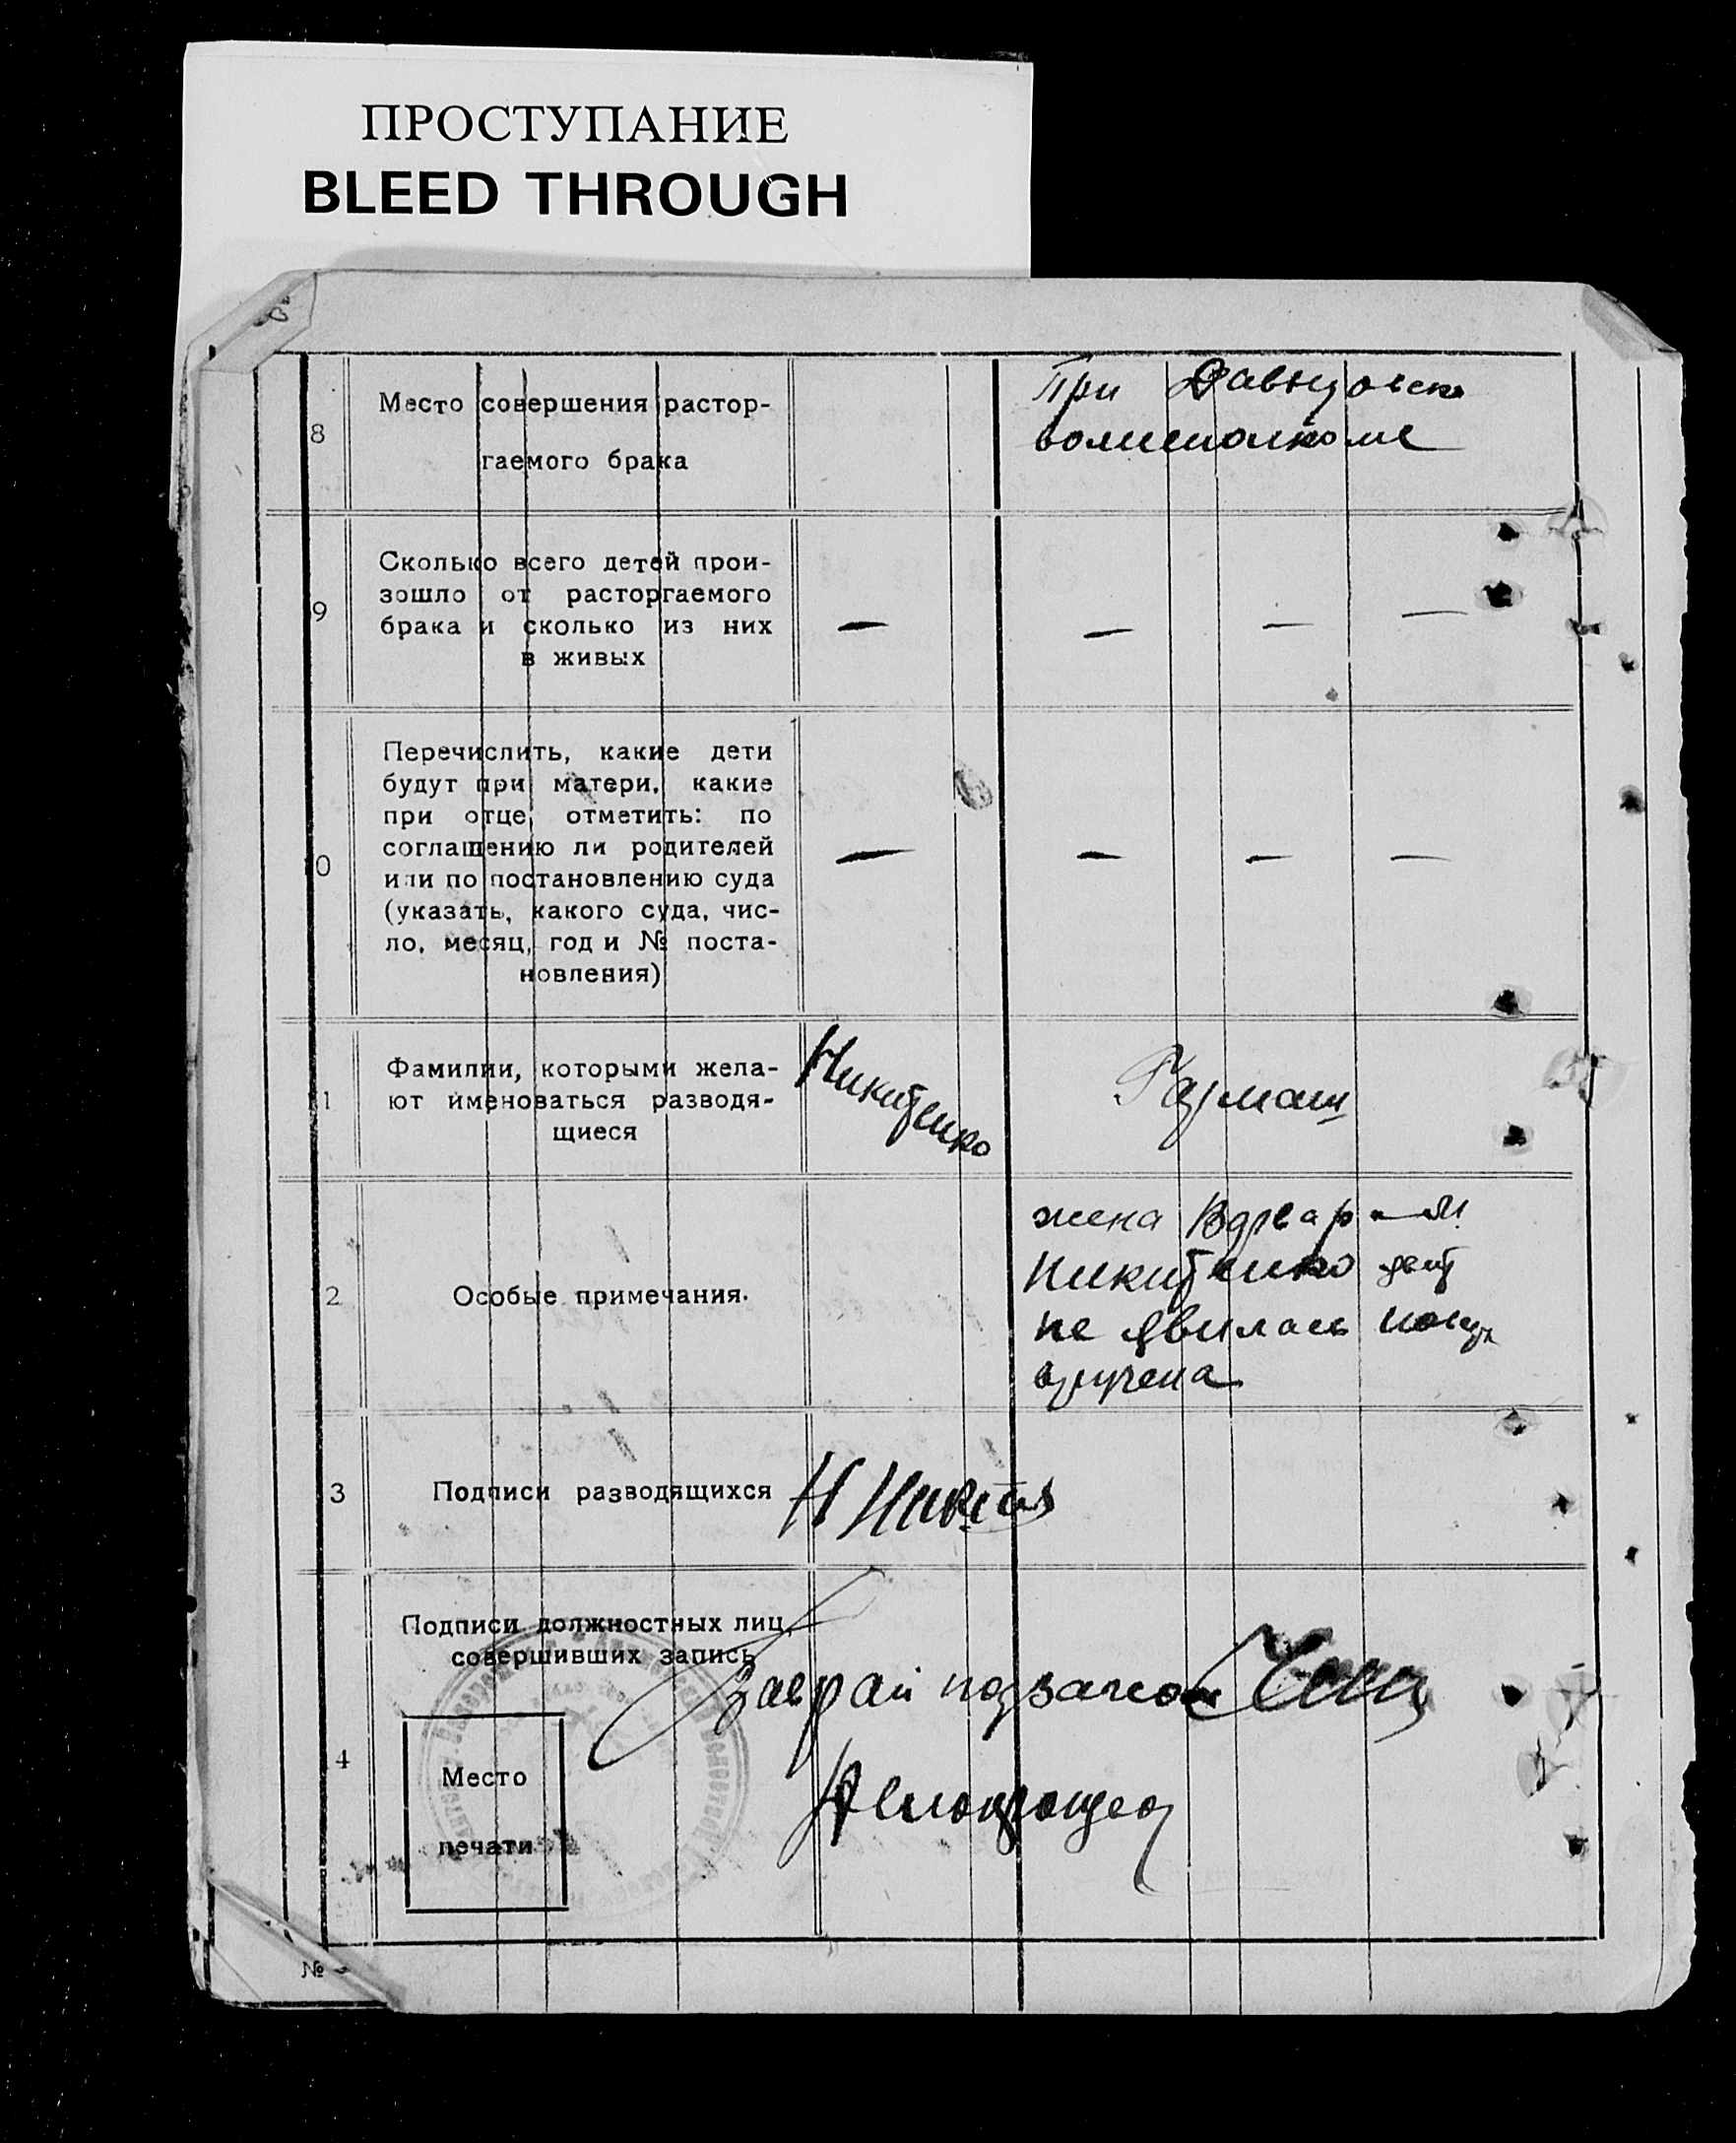 ПРОСТУПАНИЕ
BLEED THROUGH
8
Место совершения растор-
гаемого брака
При
волисполкоме
9
Сколько всего детей прои-
зошло от расторгаемого
брака и сколько из них
в живых
— — — —
0
Перечислить, какие дети
будут при матери, какие
при отце, отметить: по
соглашению ли родителей
или по постановлению суда
(указать, какого суда, чис-
ло, месяц, год и № поста-
новления)
— — — —
1
Фамилии, которыми жела-
ют именоваться разводя-
щиеся
Никитенко
Гармаш
2
Особые примечания.
жена
Никитенко
не явилась
вручена
3
Подписи разводящихся
4
Подписи должностных лиц,
совершивших запись
Место
печати
№